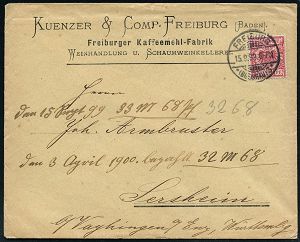 KUENZER & COMP. FREIBURG (BADEN).
Freiburger Kaffeemehl-Fabrik
WEINHANDLUNG U. SCHAUMWEINKELLEREI.
FREIBURG
Herrn
den 15 Sept 99 33 M 68 Pf 32 68
Joh. Armbruster
den 3 April 1900 bezahlt 32 M 68
Sersheim
Vayhingen / Enz, Württembg